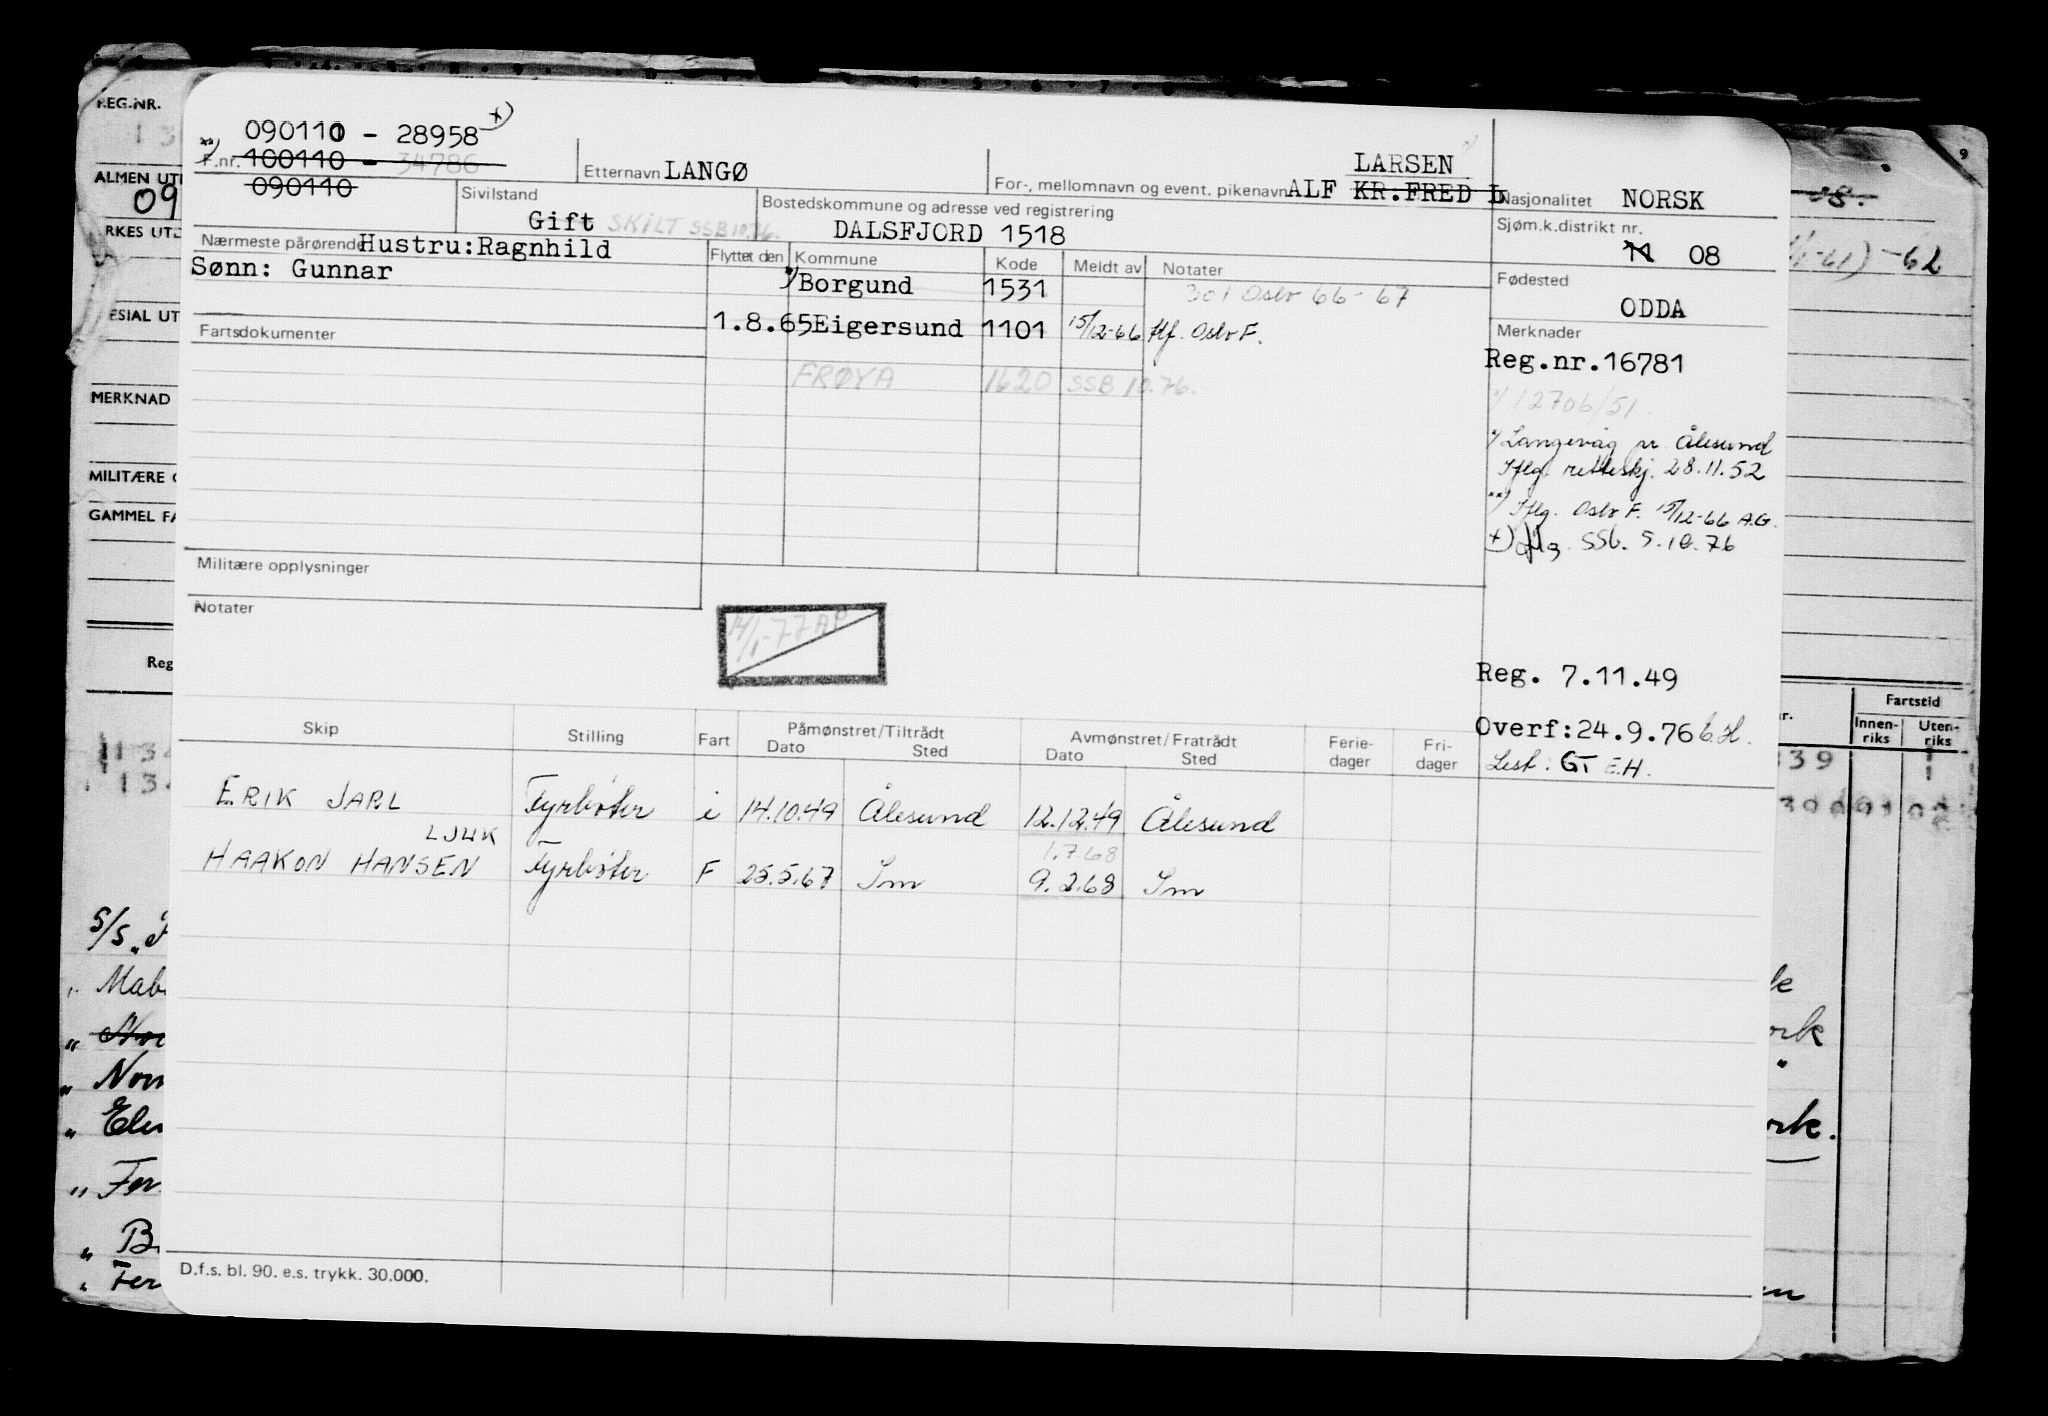 REG.NR.
13
ALMEN UT
09
MERKNAD
MILITÆRE
GAMMEL FA
Reg
090110 - 28958 *)
**) F.nr. 100110 - 34786
090110
Etternavn LANGØ
For-, mellomnavn og event. pikenavn ALF KR.FRED L
LARSEN
Nasjonalitet NORSK
Sivilstand
Gift SKILT SSB 10.76.
Bostedskommune og adresse ved registrering
DALSFJORD 1518
Sjøm.k.distrikt nr.
08
Nærmeste pårørende Hustru:Ragnhild
Sønn: Gunnar
Flyttet den Kommune Kode Meldt av Notater
Borgund 1531 301 Oslo 66-67
1.8.65 Eigersund 1101 15/12-66 Hf. Oslo F.
FRØYA 1620 SSB 10.76.
Fødested
ODDA
Fartsdokumenter
Merknader
Reg.nr.16781
12706/51.
Langevåg pr Ålesund
Iflg. retteskj. 28.11.52
**) Iflg. Oslo F. 15/12-66 A.G.
+) Iflg. SSb. 5.10.76
Militære opplysninger
Notater
14/1-77 AP
Reg. 7.11.49
Overf:24.9.76 E.H.
Lest: GT E.H.
Skip Stilling Fart Påmønstret/Tiltrådt Dato Sted Avmønstret/Fratrådt Dato Sted Ferie-dager Fri-dager
ERIK JARL Fyrbøter i 14.10.49 Ålesund 12.12.49 Ålesund
LJUK 1.7.68
HAAKON HANSEN Fyrbøter F 25.5.67 Sm 9.2.68 Sm
D.f.s. bl. 90. e.s. trykk. 30.000.
9
-62
Fartstid
Innen-riks Uten-riks
S/s